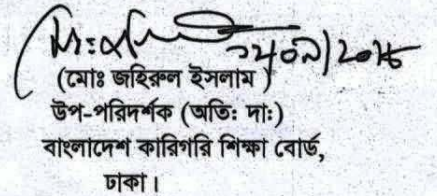 (মোঃ জহিরুল ইসলাম )
উপ-পরিদর্শক (অতি: দা:)
বাংলাদেশ কারিগরি শিক্ষা বোর্ড,
ঢাকা।